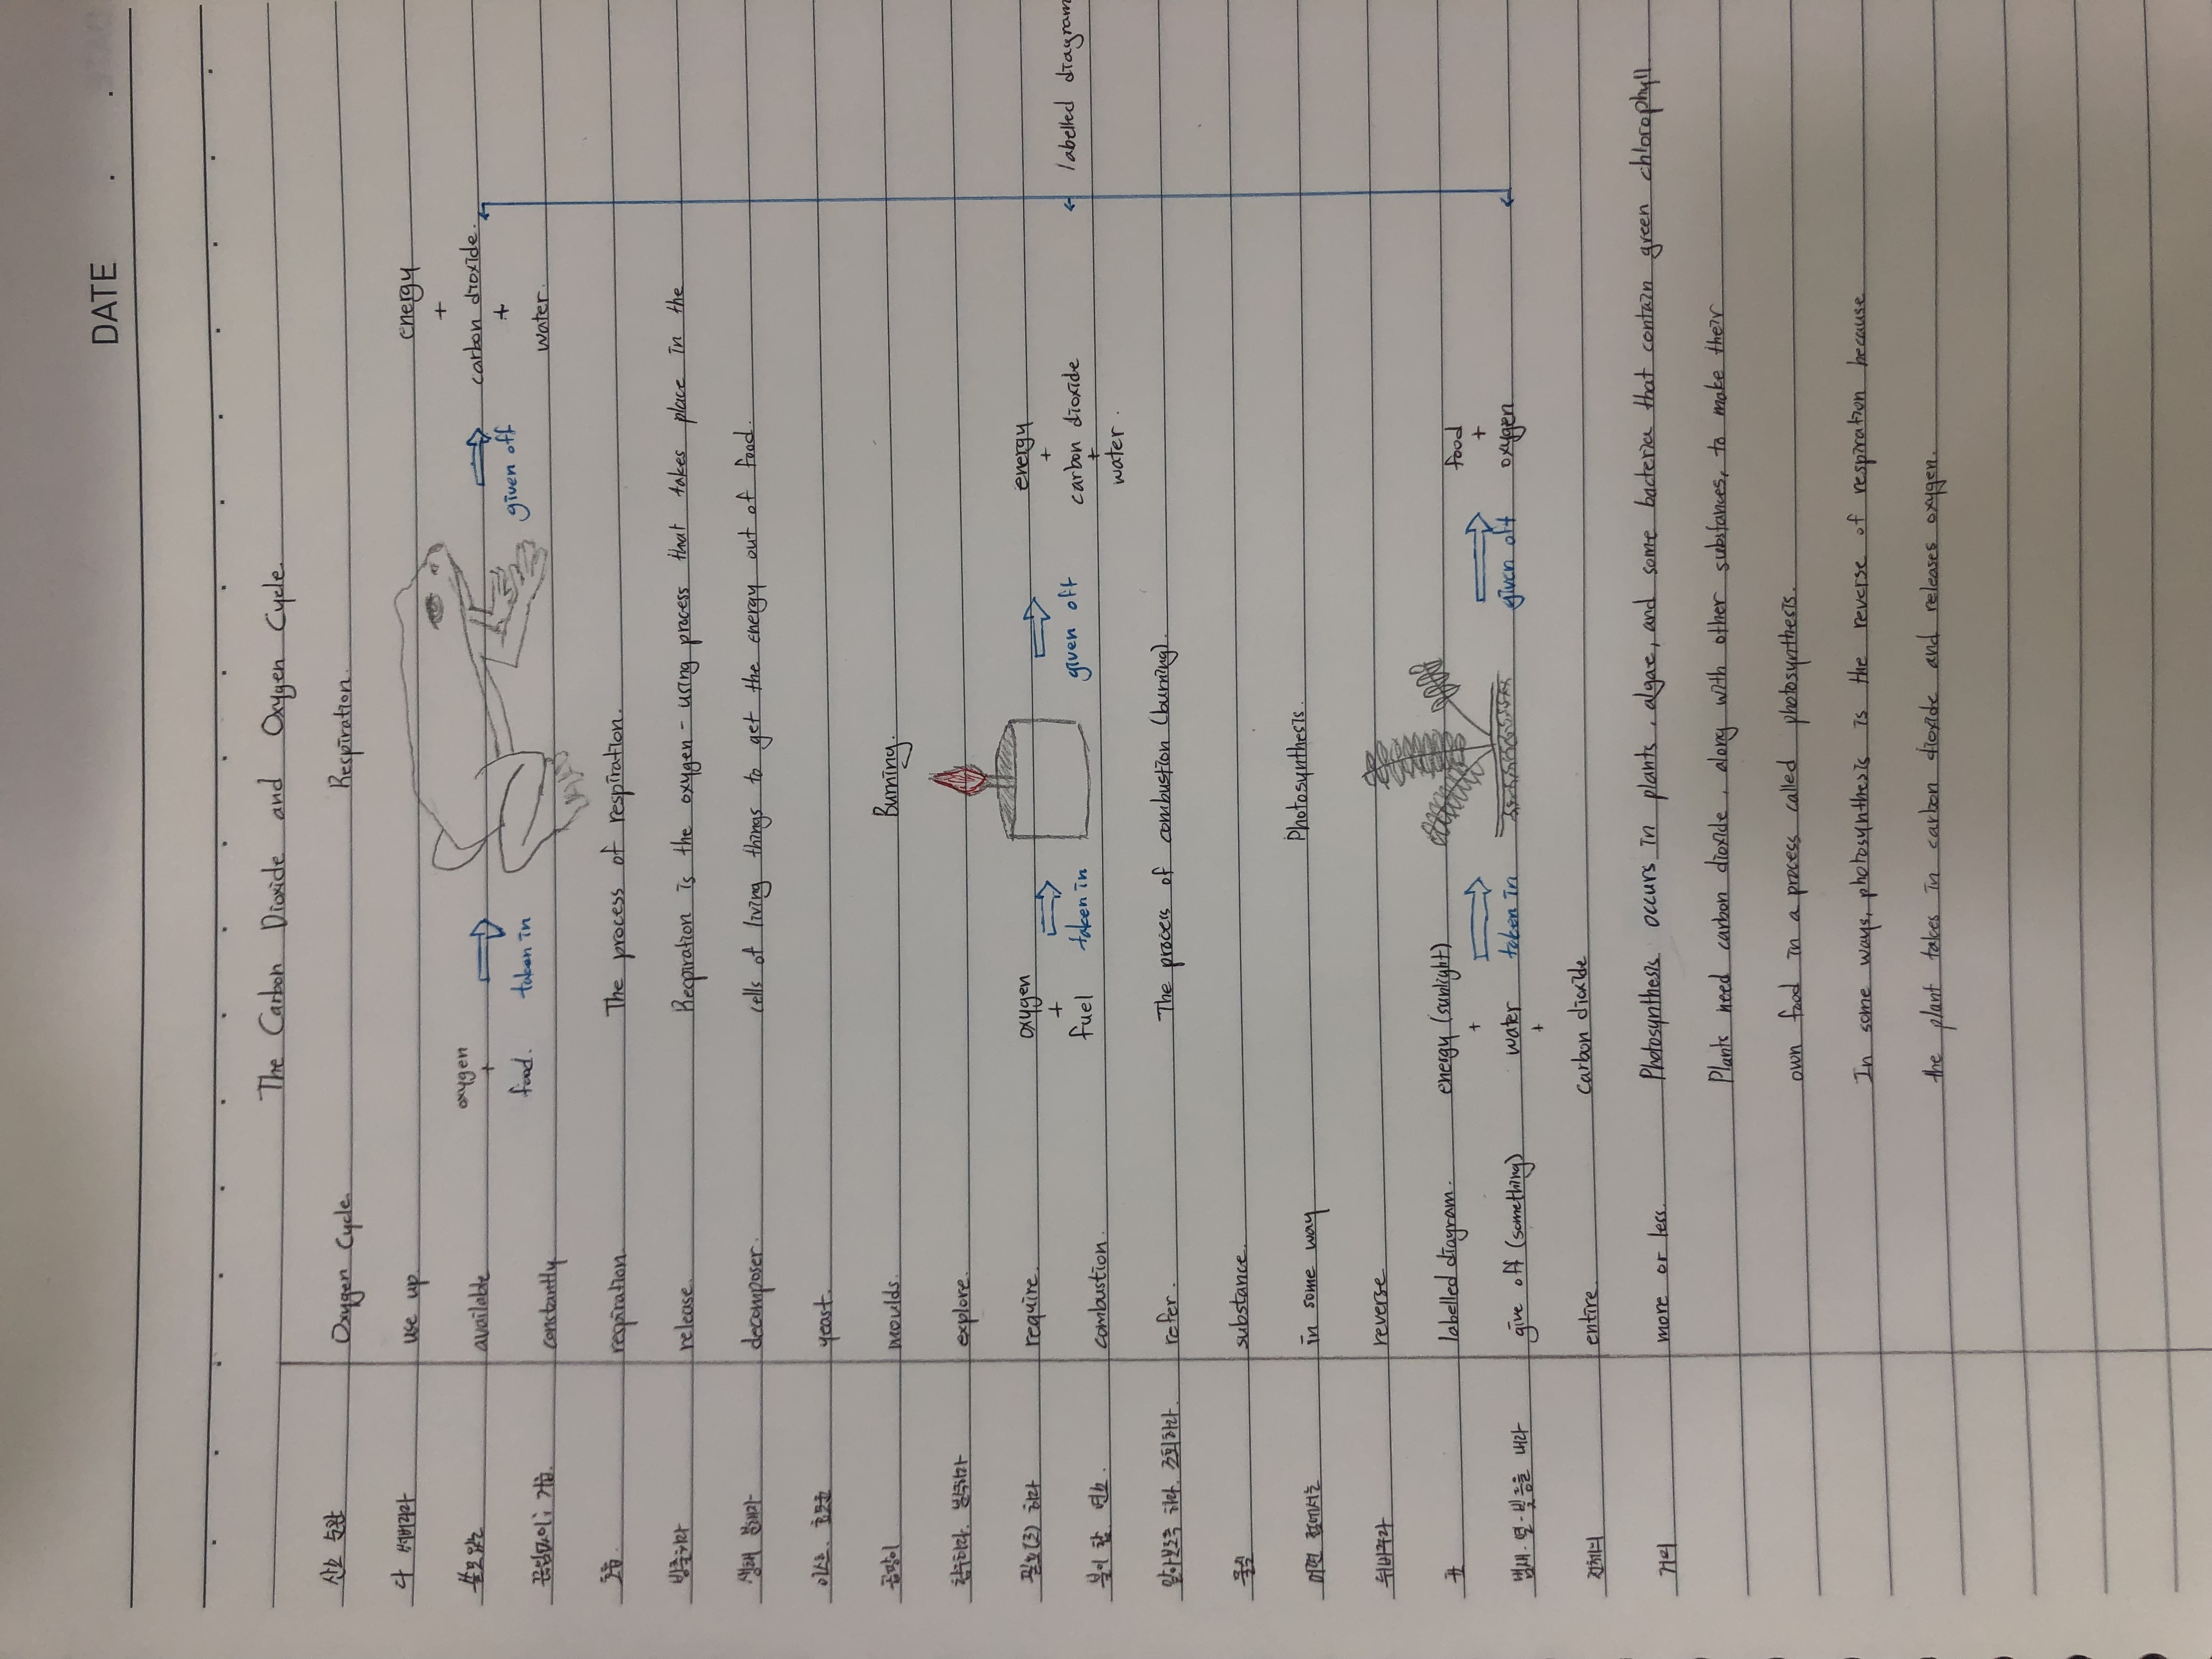 DATE . .
The Carbon Dioxide and Oxygen Cycle.
산소 순환 Oxygen Cycle. Respiration.
다 써버리다 use up.
쓸모있는 available
끊임없이; 거듭. constantly
oxygen
+
food.
taken in
given off
energy
+
carbon dioxide.
+
water.
호흡. respiration. The process of respiration.
방출하다 release. Respiration is the oxygen-using process that takes place in the
생태 분해자 decomposer. cells of living things to get the energy out of food.
이스트. 효모균 yeast.
곰팡이 moulds. Burning.
탐구하다. 분석하다 explore.
필요(로) 하다 require.
불이 탐. 연소. combustion.
oxygen
+
fuel
taken in
given off
energy
+
carbon dioxide
+
water.
← labelled diagram
알아보도록 하다. 조회하다. refer. The process of combustion (burning).
물질 substance.
어떤 점에서는 in some way Photosynthesis.
뒤바꾸다 reverse
표 labelled diagram.
냄새·열·빛을 내다 give off (something)
전체의 entire.
energy (sunlight)
+
water
+
carbon dioxide
taken in
given off
food
+
oxygen
거의 more or less. Photosynthesis occurs in plants, algae, and some bacteria that contain green chlorophyll.
Plants need carbon dioxide, along with other substances, to make their
own food in a process called photosynthesis.
In some ways, photosynthesis is the reverse of respiration because
the plant takes in carbon dioxide and releases oxygen.